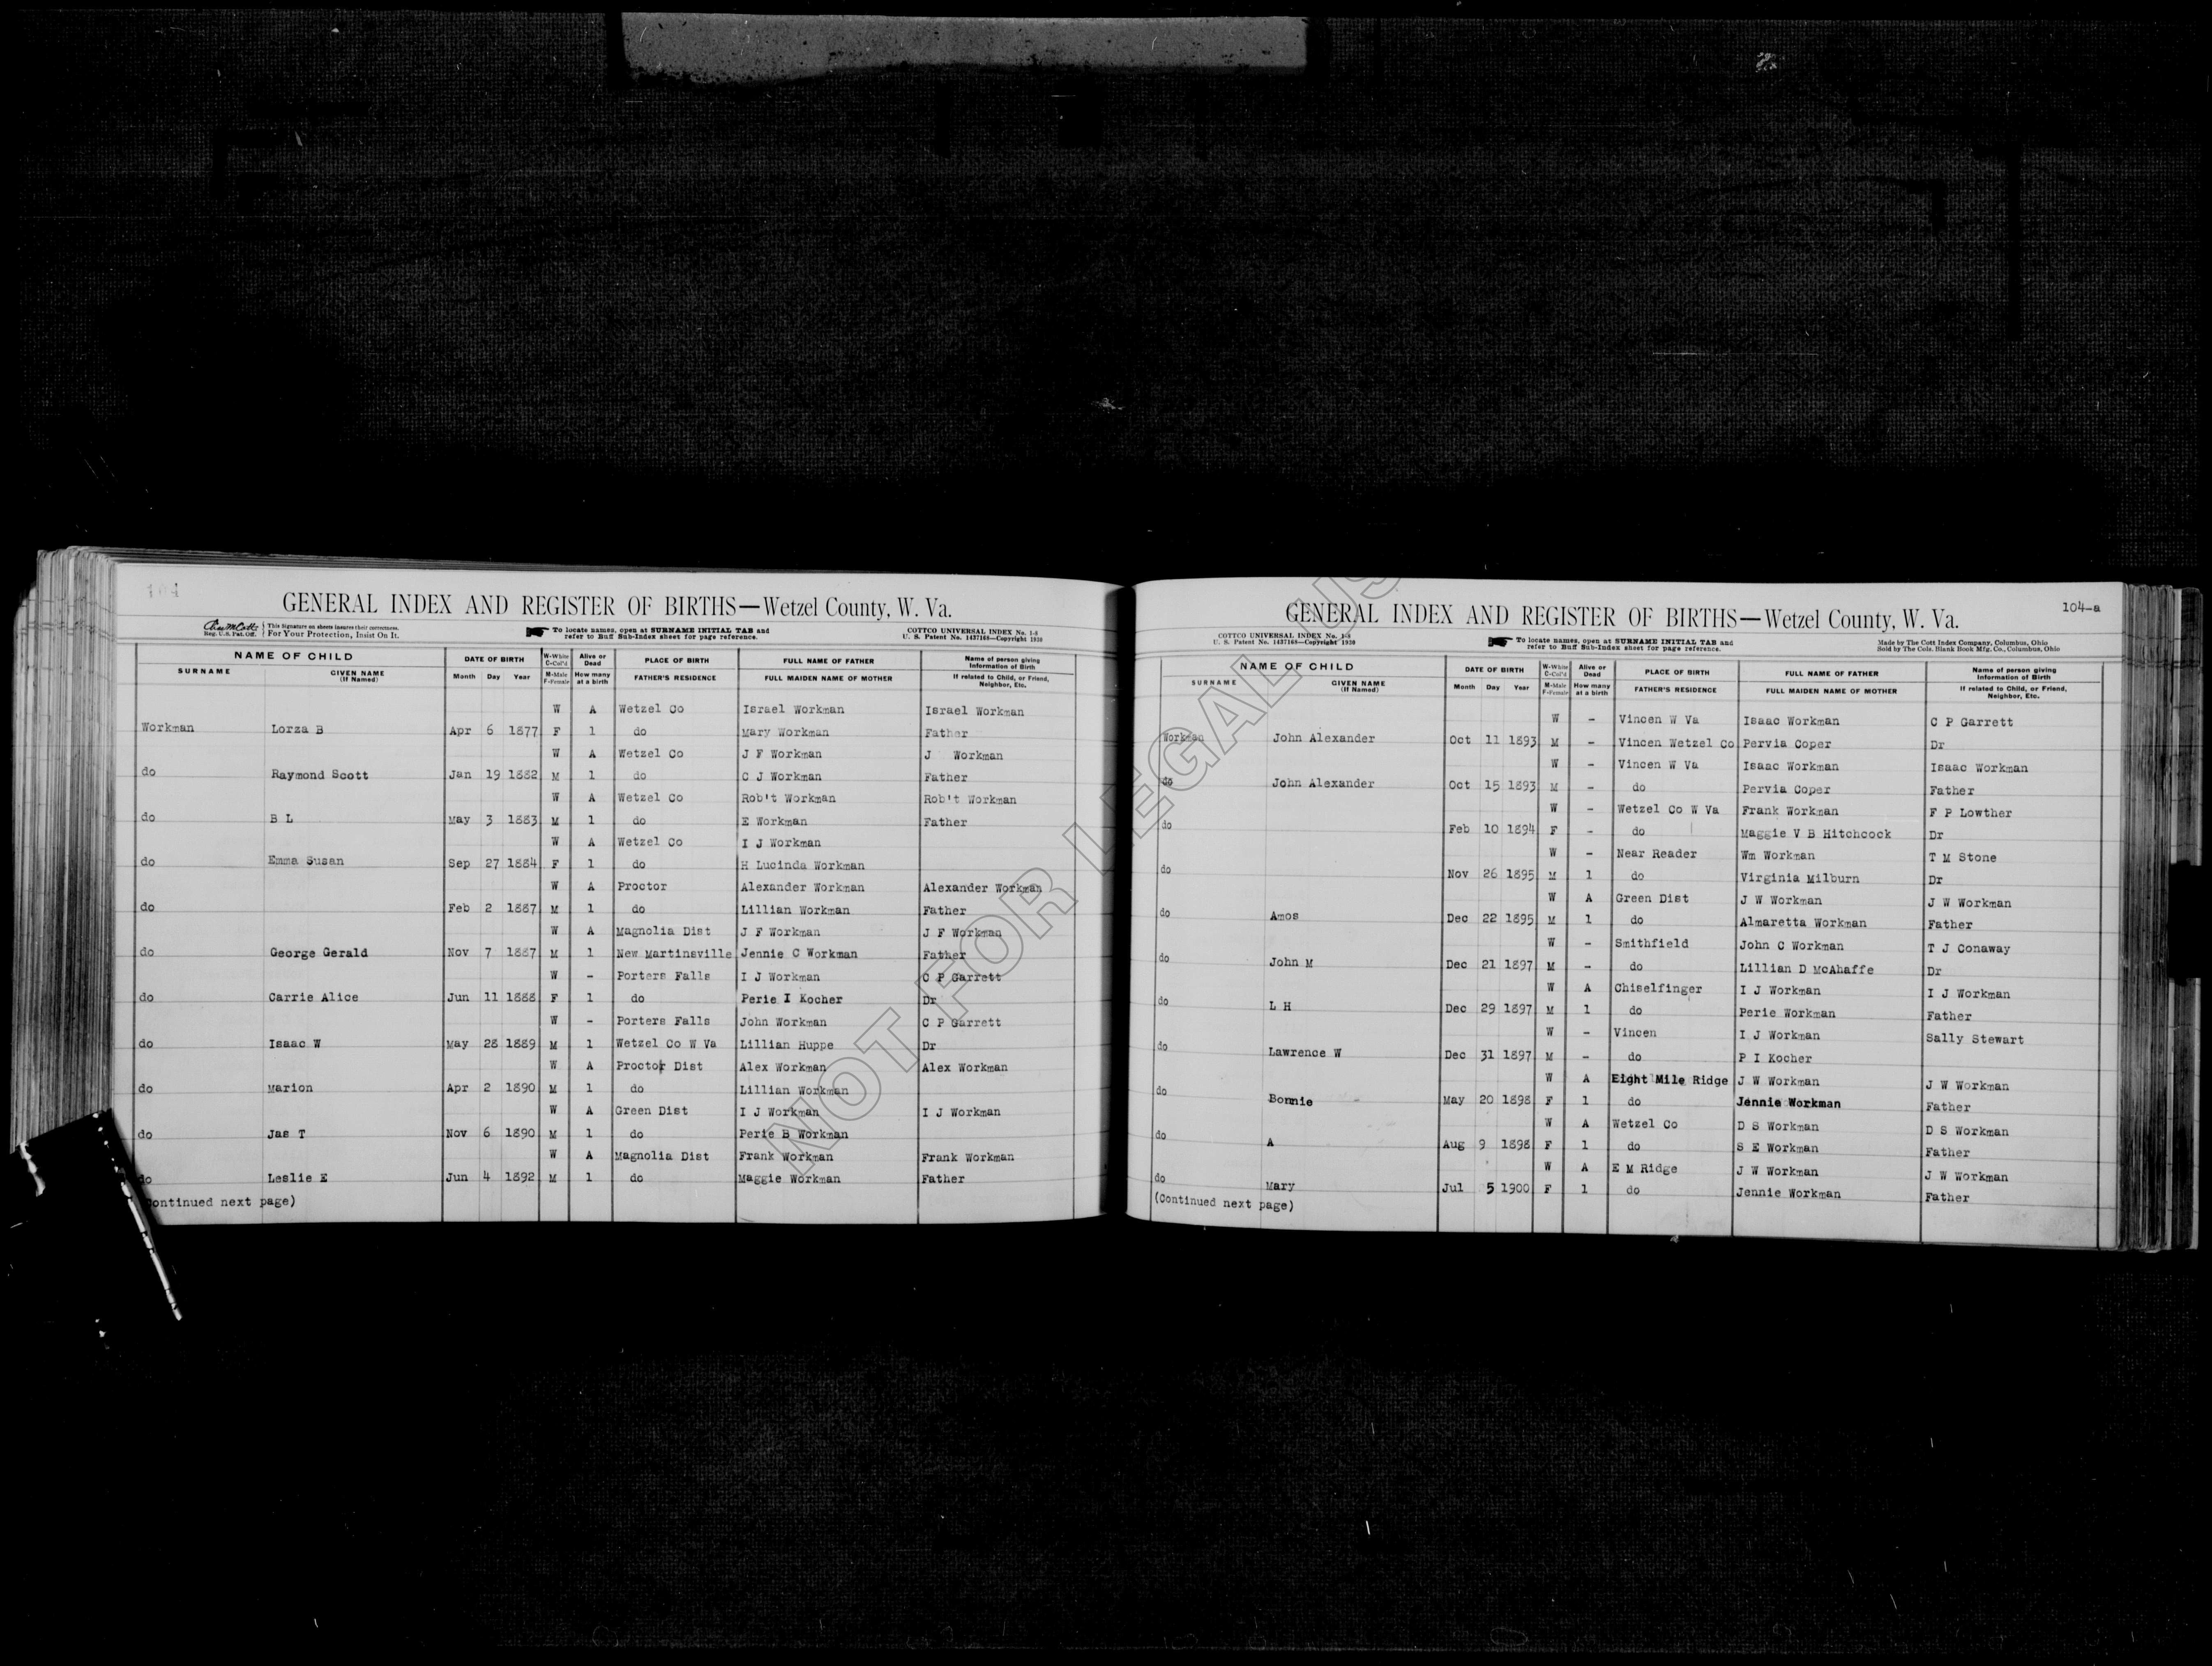 104
GENERAL INDEX AND REGISTER OF BIRTHS—Wetzel County, W. Va.
Reg. U.S. Pat. Off. This Signature on sheets insures their correctness. For Your Protection, Insist On It.
To locate names, open at SURNAME INITIAL TAB and refer to Buff Sub-Index sheet for page reference.
COTTCO UNIVERSAL INDEX No. 1-8
U. S. Patent No. 1437168—Copyright 1930
NAME OF CHILD DATE OF BIRTH W-White C-Col'd Alive or Dead PLACE OF BIRTH FULL NAME OF FATHER Name of person giving Information of Birth
SURNAME GIVEN NAME (If Named) Month Day Year M-Male F-Female How many at a birth FATHER'S RESIDENCE FULL MAIDEN NAME OF MOTHER If related to Child, or Friend, Neighbor, Etc.
W A Wetzel Co Israel Workman Israel Workman
Workman Lorza B Apr 6 1877 F 1 do Mary Workman Father
W A Wetzel Co J F Workman J Workman
do Raymond Scott Jan 19 1882 M 1 do C J Workman Father
W A Wetzel Co Rob't Workman Rob't Workman
do B L May 3 1883 M 1 do E Workman Father
W A Wetzel Co I J Workman
do Emma Susan Sep 27 1884 F 1 do H Lucinda Workman
W A Proctor Alexander Workman Alexander Workman
do Feb 2 1887 M 1 do Lillian Workman Father
W A Magnolia Dist J F Workman J F Workman
do George Gerald Nov 7 1887 M 1 New Martinsville Jennie C Workman Father
W - Porters Falls I J Workman C P Garrett
do Carrie Alice Jun 11 1888 F 1 do Perie I Kocher Dr
W - Porters Falls John Workman C P Garrett
do Isaac W May 28 1889 M 1 Wetzel Co W Va Lillian Huppe Dr
W A Proctor Dist Alex Workman Alex Workman
do Marion Apr 2 1890 M 1 do Lillian Workman
W A Green Dist I J Workman I J Workman
do Jas T Nov 6 1890 M 1 do Perie B Workman
W A Magnolia Dist Frank Workman Frank Workman
do Leslie E Jun 4 1892 M 1 do Maggie Workman Father
(Continued next page)
104-a
GENERAL INDEX AND REGISTER OF BIRTHS—Wetzel County, W. Va.
COTTCO UNIVERSAL INDEX No. 1-8
U. S. Patent No. 1437168—Copyright 1930
To locate names, open at SURNAME INITIAL TAB and refer to Buff Sub-Index sheet for page reference.
Made by The Cott Index Company, Columbus, Ohio
Sold by The Cols. Blank Book Mfg. Co., Columbus, Ohio
NAME OF CHILD DATE OF BIRTH W-White C-Col'd Alive or Dead PLACE OF BIRTH FULL NAME OF FATHER Name of person giving Information of Birth
SURNAME GIVEN NAME (If Named) Month Day Year M-Male F-Female How many at a birth FATHER'S RESIDENCE FULL MAIDEN NAME OF MOTHER If related to Child, or Friend, Neighbor, Etc.
W - Vincen W Va Isaac Workman C P Garrett
Workman John Alexander Oct 11 1893 M - Vincen Wetzel Co Pervia Coper Dr
W - Vincen W Va Isaac Workman Isaac Workman
do John Alexander Oct 15 1893 M - do Pervia Coper Father
W - Wetzel Co W Va Frank Workman F P Lowther
do Feb 10 1894 F - do Maggie V B Hitchcock Dr
W - Near Reader Wm Workman T M Stone
do Nov 26 1895 M 1 do Virginia Milburn Dr
W A Green Dist J W Workman J W Workman
do Amos Dec 22 1895 M 1 do Almaretta Workman Father
W - Smithfield John C Workman T J Conaway
do John M Dec 21 1897 M - do Lillian D McAhaffe Dr
W A Chiselfinger I J Workman I J Workman
do L H Dec 29 1897 M 1 do Perie Workman Father
W - Vincen I J Workman Sally Stewart
do Lawrence W Dec 31 1897 M - do P I Kocher
W A Eight Mile Ridge J W Workman J W Workman
do Bonnie May 20 1898 F 1 do Jennie Workman Father
W A Wetzel Co D S Workman D S Workman
do A Aug 9 1898 F 1 do S E Workman Father
W A E M Ridge J W Workman J W Workman
do Mary Jul 5 1900 F 1 do Jennie Workman Father
(Continued next page)
NOT FOR LEGAL US